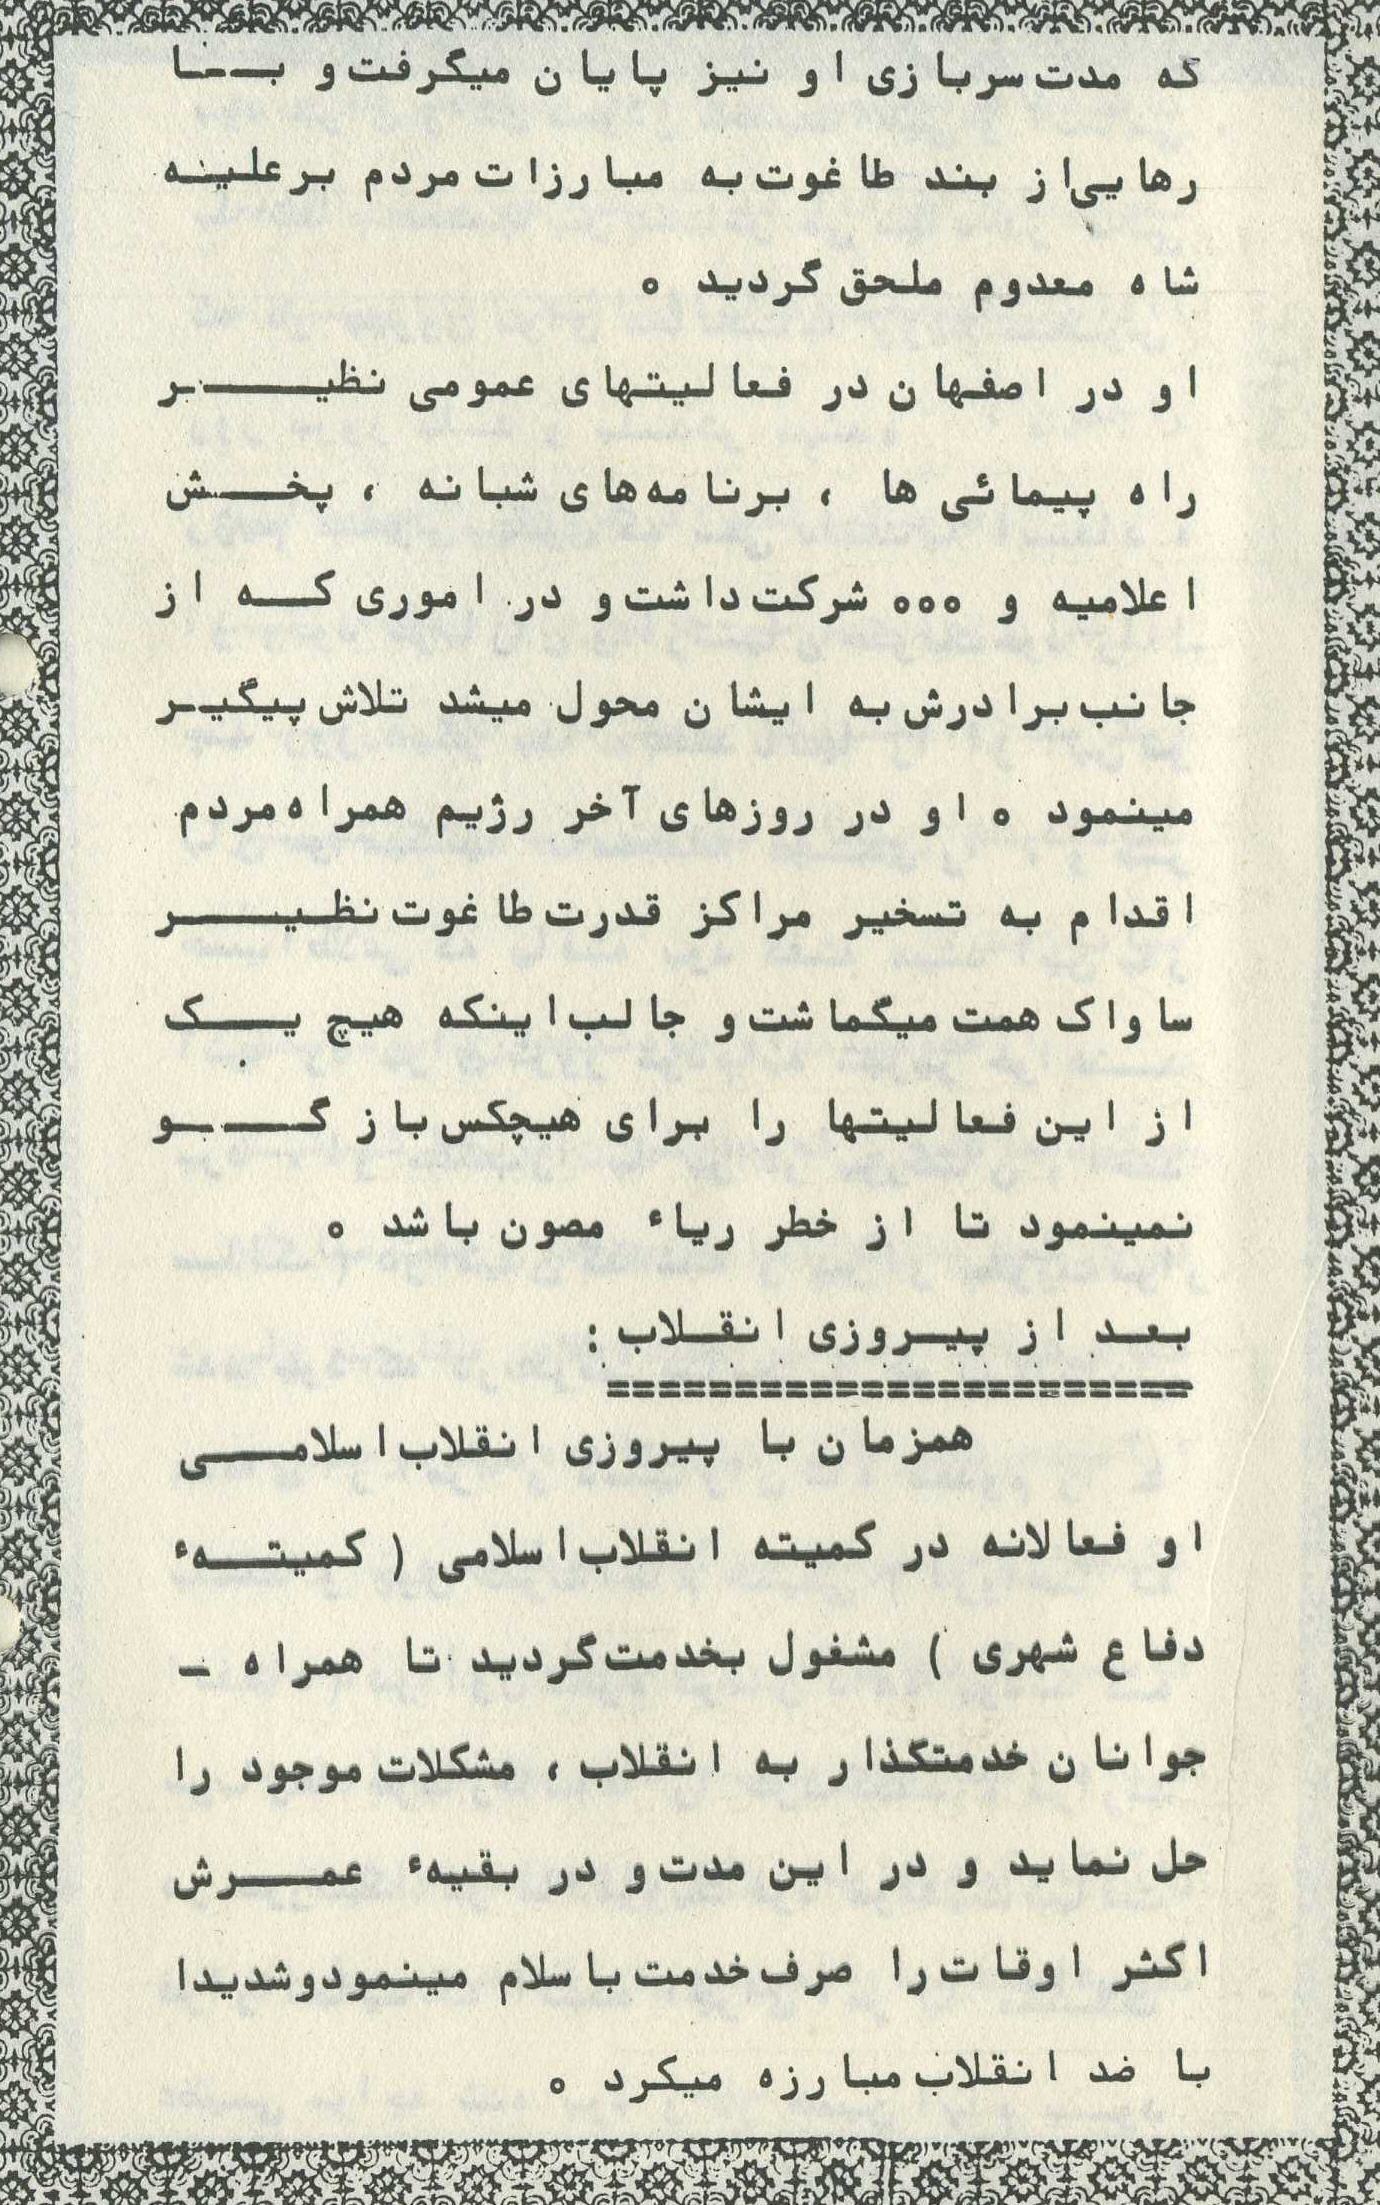 که مدت سربازی او نیز پایان میگرفت و بــا
رهایی از بند طاغوت به مبارزات مردم برعلیـه
شاه معدوم ملحق گردید ۰
او در اصفهان در فعالیتهای عمومی نظیـــر
راه پیمائی ها ، برنامه‌های شبانه ، پخــش
اعلامیه و ۰۰۰ شرکت داشت و در اموری کــه از
جانب برادرش به ایشان محول میشد تلاش پیگیـر
مینمود ۰ او در روزهای آخر رژیم همراه مردم
اقدام به تسخیر مراکز قدرت طاغوت نظیـــر
ساواک همت میگماشت و جالب اینکه هیچ یــک
از این فعالیتها را برای هیچکس باز گـــو
نمینمود تا از خطر ریاء مصون باشد ۰
بعـد از پیـروزی انقـلاب :
=======================
همزمان با پیروزی انقلاب اسلامـــی
او فعالانه در کمیته انقلاب اسلامی ( کمیتــهء
دفاع شهری ) مشغول بخدمت گردید تا همراه -
جوانان خدمتگذار به انقلاب ، مشکلات موجود را
حل نماید و در این مدت و در بقیهء عمـــرش
اکثر اوقات را صرف خدمت باسلام مینمود و شدیدا
با ضد انقلاب مبارزه میکرد ۰